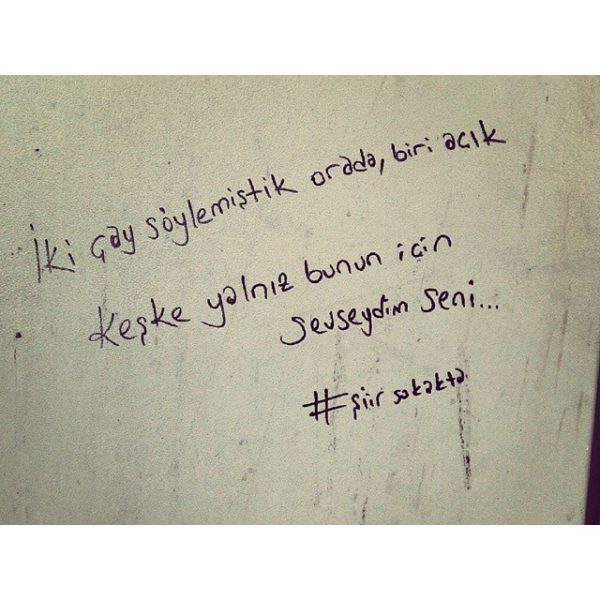 İki çay söylemiştik orada, biri açık
Keşke yalnız bunun için
sevseydim seni...
#şiir sokakta